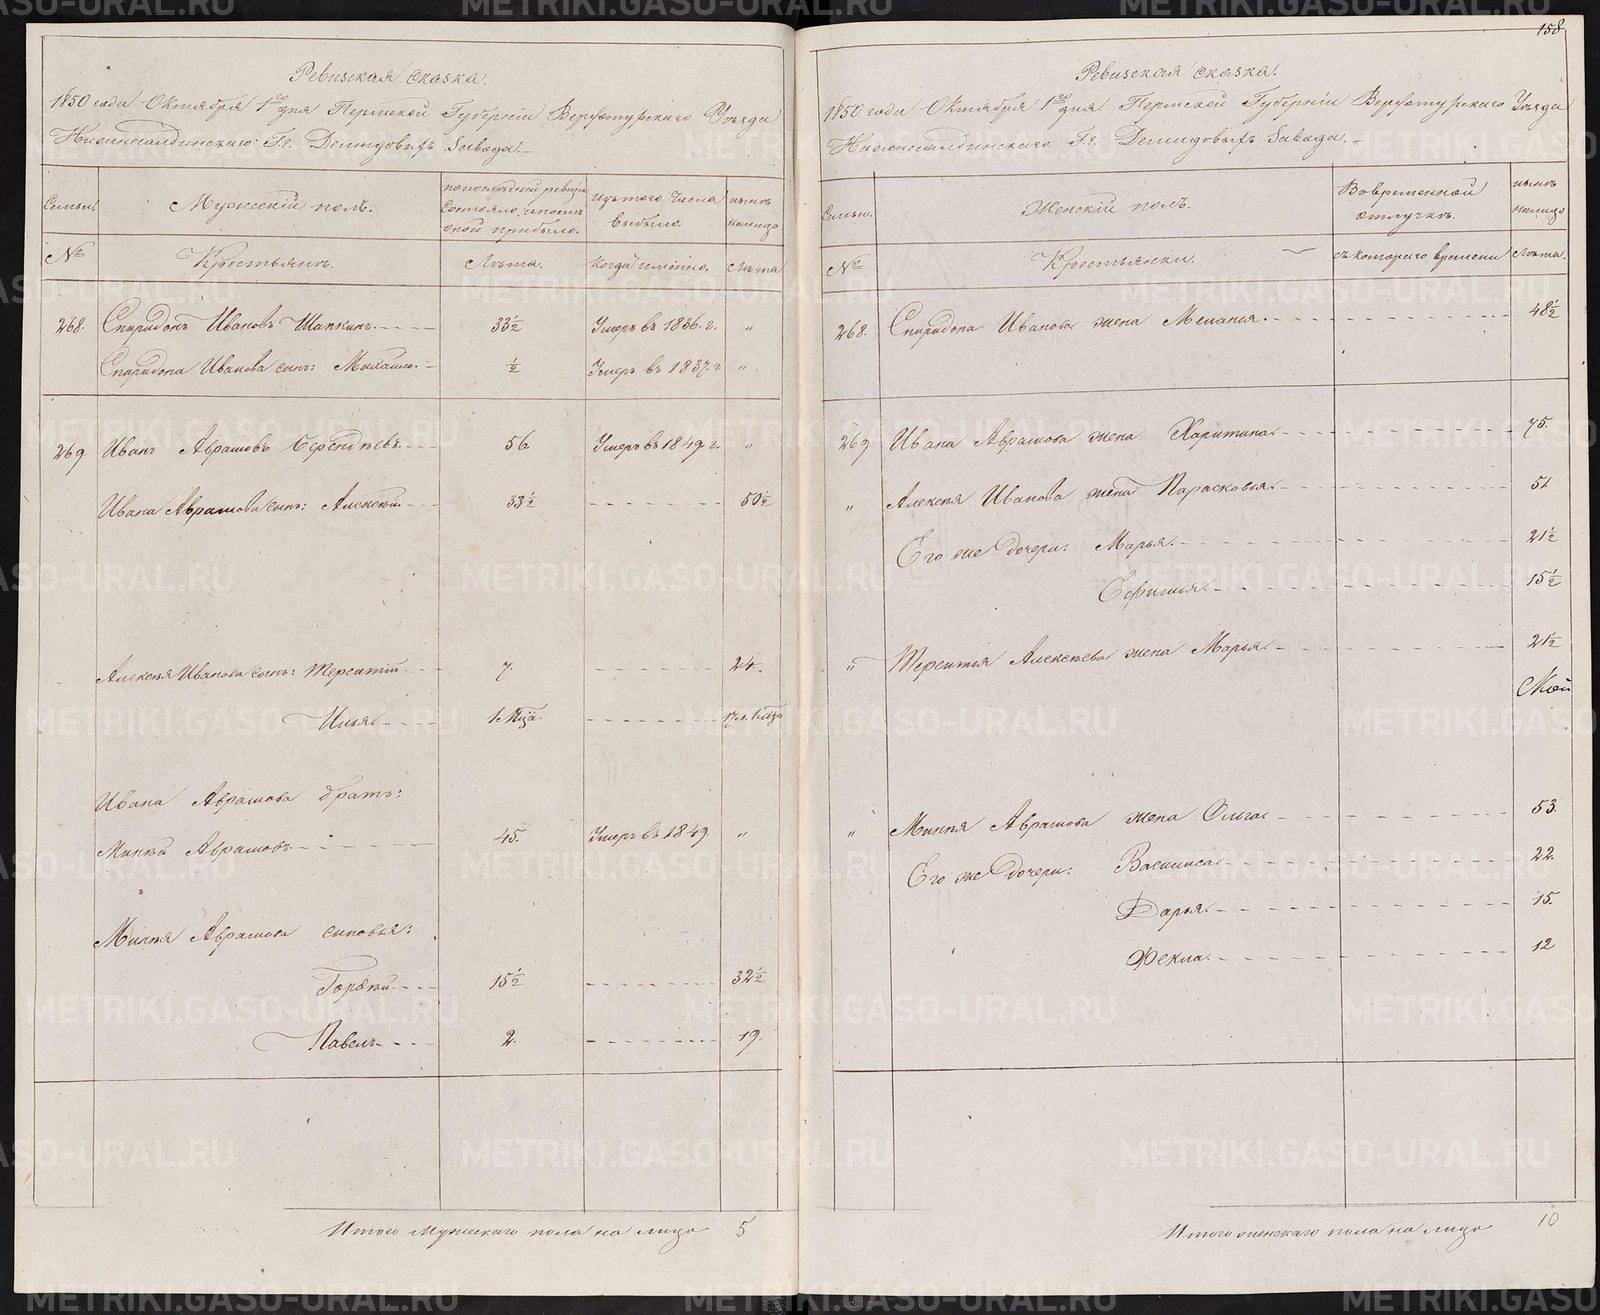 158
Ревизская сказка.
1850 года Октября 1го дня Пермской Губернии Верхотурскаго Уезда
Нижнесалдинскаго Гг. Демидовыхъ Завода.
Семьи. Мужескій полъ. по последней ревизіи состояло, и после оной прибыло. изъ того числа выбыло. ныне на лицо
№ Крестьянъ. Лѣта. Когда именно. Лѣта
268. Спиридонъ Ивановъ Шапкинъ 33½ Умеръ въ 1836. г. "
Спиридона Иванова сынъ: Михайло. ½ Умеръ въ 1837. г "
269 Иванъ Аврамовъ Берендѣевъ 56. Умеръ въ 1849. г. "
Ивана Аврамова сынъ: Алексѣй 33½ 50½
Алексѣя Иванова сынъ: Терентій 7. 24.
Илья 1 Мца. 17 л. 1 мца
Ивана Аврамова братъ:
Минѣй Аврамовъ 45. Умеръ въ 1849. "
Минѣя Аврамова сыновья:
Гордѣй 15½ 32½
Павелъ 2. 19.
Итого Мужескаго пола на лицо 5
Ревизская сказка.
1850 года Октября 1го дня Пермской Губерніи Верхотурскаго Уезда
Нижнесалдинскаго Гг. Демидовыхъ Завода.
Семьи. Женскій полъ. Во временной отлучкѣ. ныне на лицо
№ Крестьянки. съ котораго времени Лѣта.
268. Спиридона Иванова жена Меланья 48½
269 Ивана Аврамова жена Харитина 75.
" Алексѣя Иванова жена Парасковья 51
Его же дочери: Марья 21½
Ефимья 15½
" Терентія Алексѣева жена Марья 21½
" Минѣя Аврамова жена Ольга 53
Его же дочери: Василиса 22.
Дарья 15.
Фекла 12
Итого женскаго пола на лицо 10
METRIKI.GASO-URAL.RU